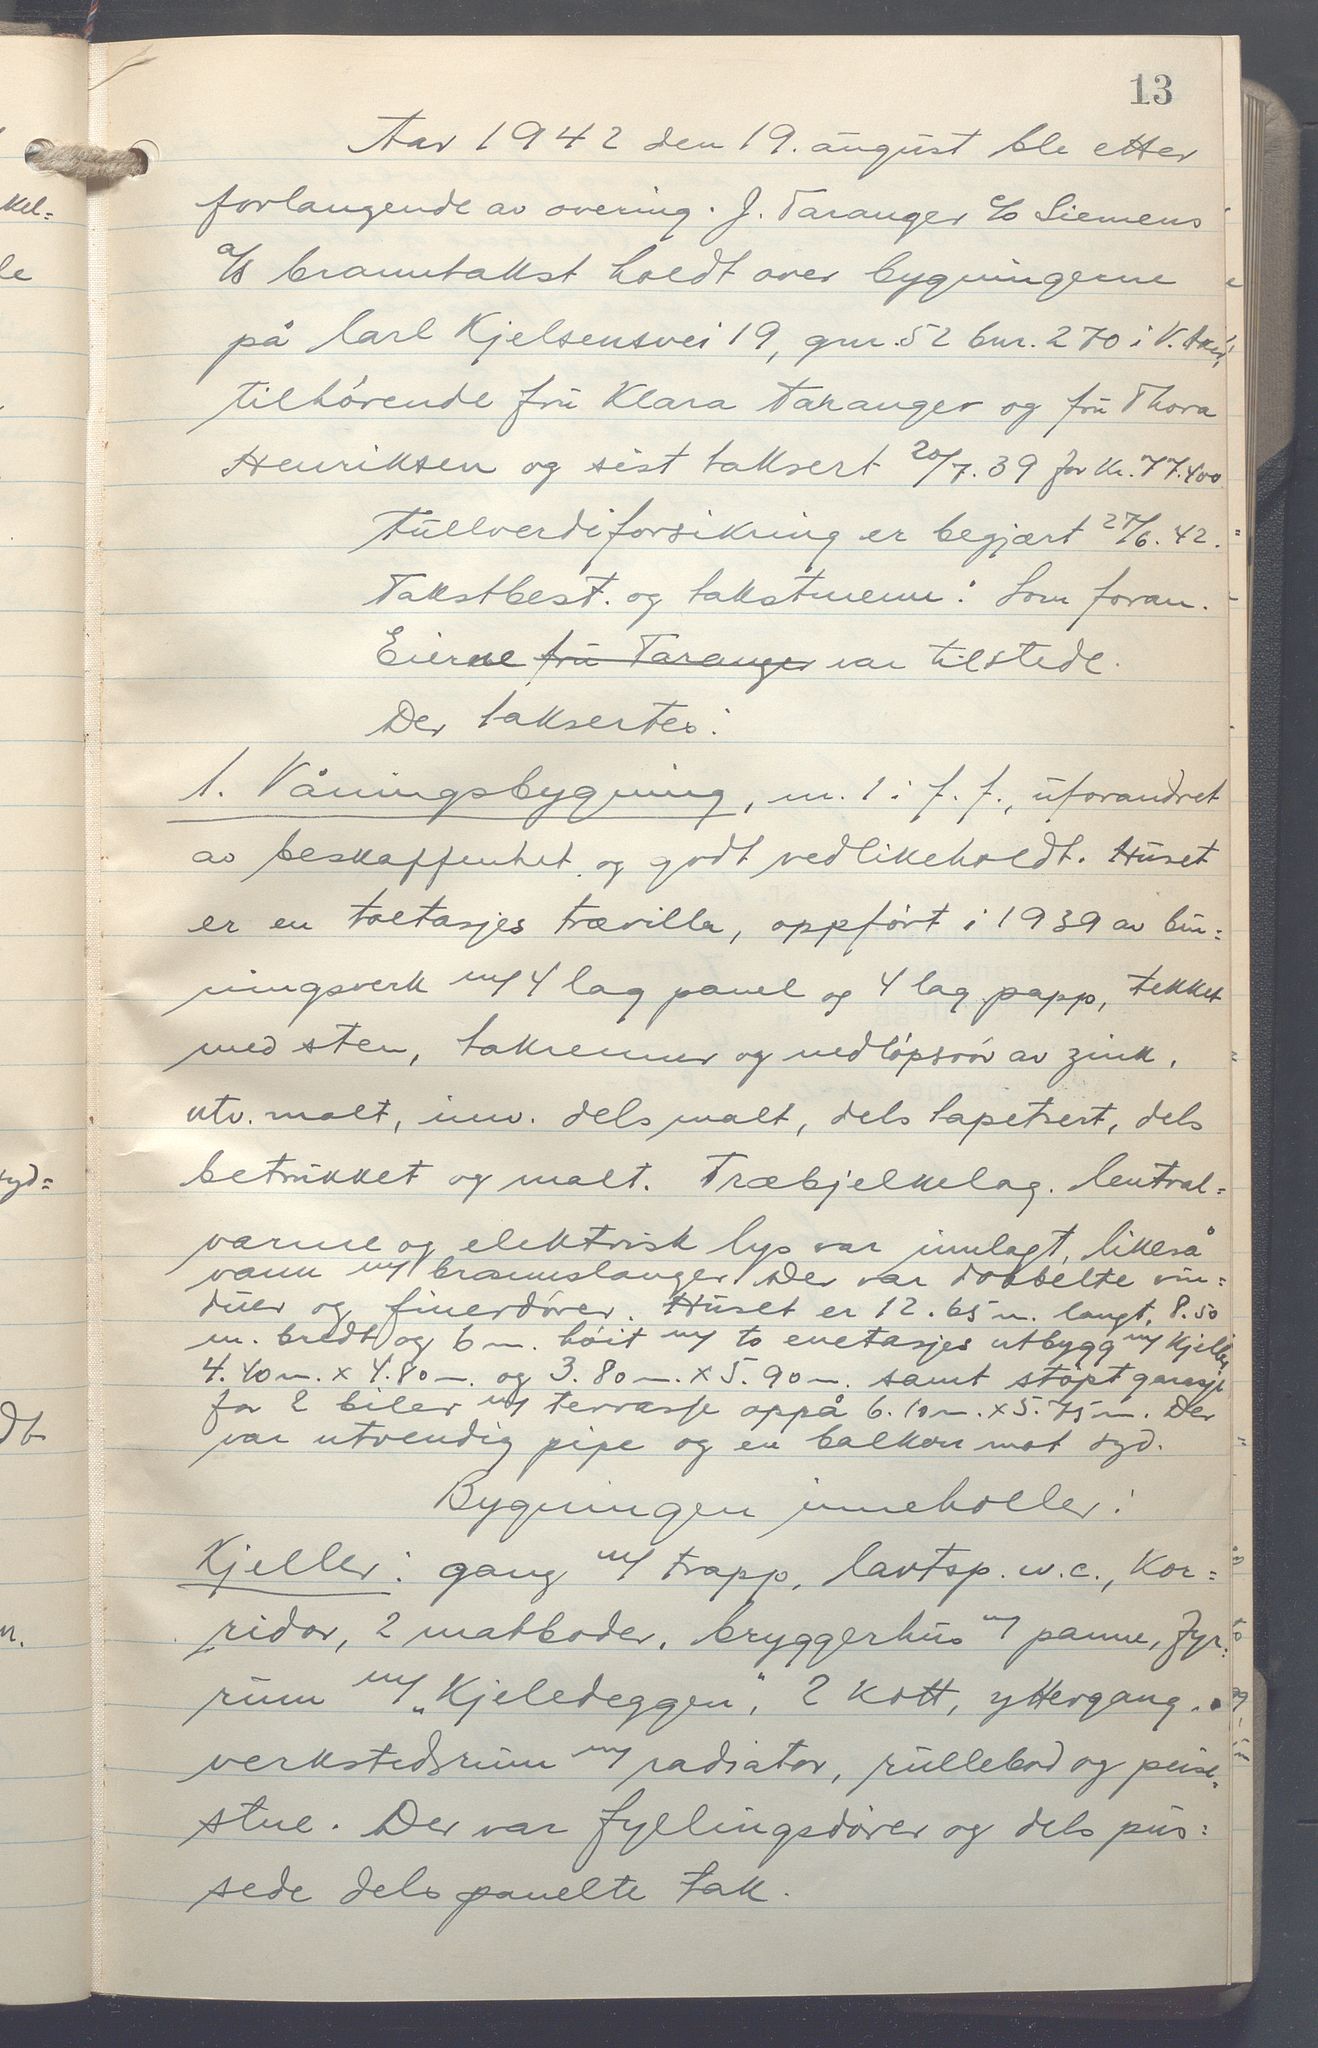 13
Aar 1942 den 19. august ble etter
forlangende av overing. J. Taranger c/o Siemens
a/s branntakst holdt over bygningerne
på Carl Kjelsensvei 19, gnr. 52 bnr. 270 i V. Aker,
tilhørende fru Klara Taranger og fru Thora
Henriksen og sist taksert 20/7.39 for kr. 77.400
Fullverdiforsikring er begjært 27/6.42.
Takstbest. og takstmenn: Som foran.
Eierne fru Taranger var tilstede.
Der taksertes:
1. Våningsbygning, nr. 1 i f.f., uforandret
av beskaffenhet og godt vedlikeholdt. Huset
er en toetasjes trævilla, oppført i 1939 av bin=
ningsverk m/ 4 lag panel og 4 lag papp, tekket
med sten, takrenner og nedløpsrør av zink,
utv. malt, innv. dels malt, dels tapetsert, dels
betrukket og malt. Træbjelkelag. Central=
varme og elektrisk lys var innlagt, likeså
vann m/ brannslanger. Der var dobbelte vin=
duer og finerdører. Huset er 12.65 m. langt, 8.50
m. bredt og 6 m. høit m/ to enetasjes utbygg m/ kjeller
4.40 m. x 4.80 m. og 3.80 m. x 5.90 m. samt støpt garasje
for 2 biler m/ terrasse oppå 6.10 m. x 5.75 m. Der
var utvendig pipe og en balkon mot syd.
Bygningen inneholder:
Kjeller: gang m/ trapp, lavtsp. w.c., kor=
ridor, 2 matboder, bryggerhus m/ panne, fyr=
rum m/ "Kjeledeggen", 2 kott, yttergang,
verkstedsrum m/ radiator, rullebod og peise=
stue. Der var fyllingsdører og dels pus=
sede dels panelte tak.